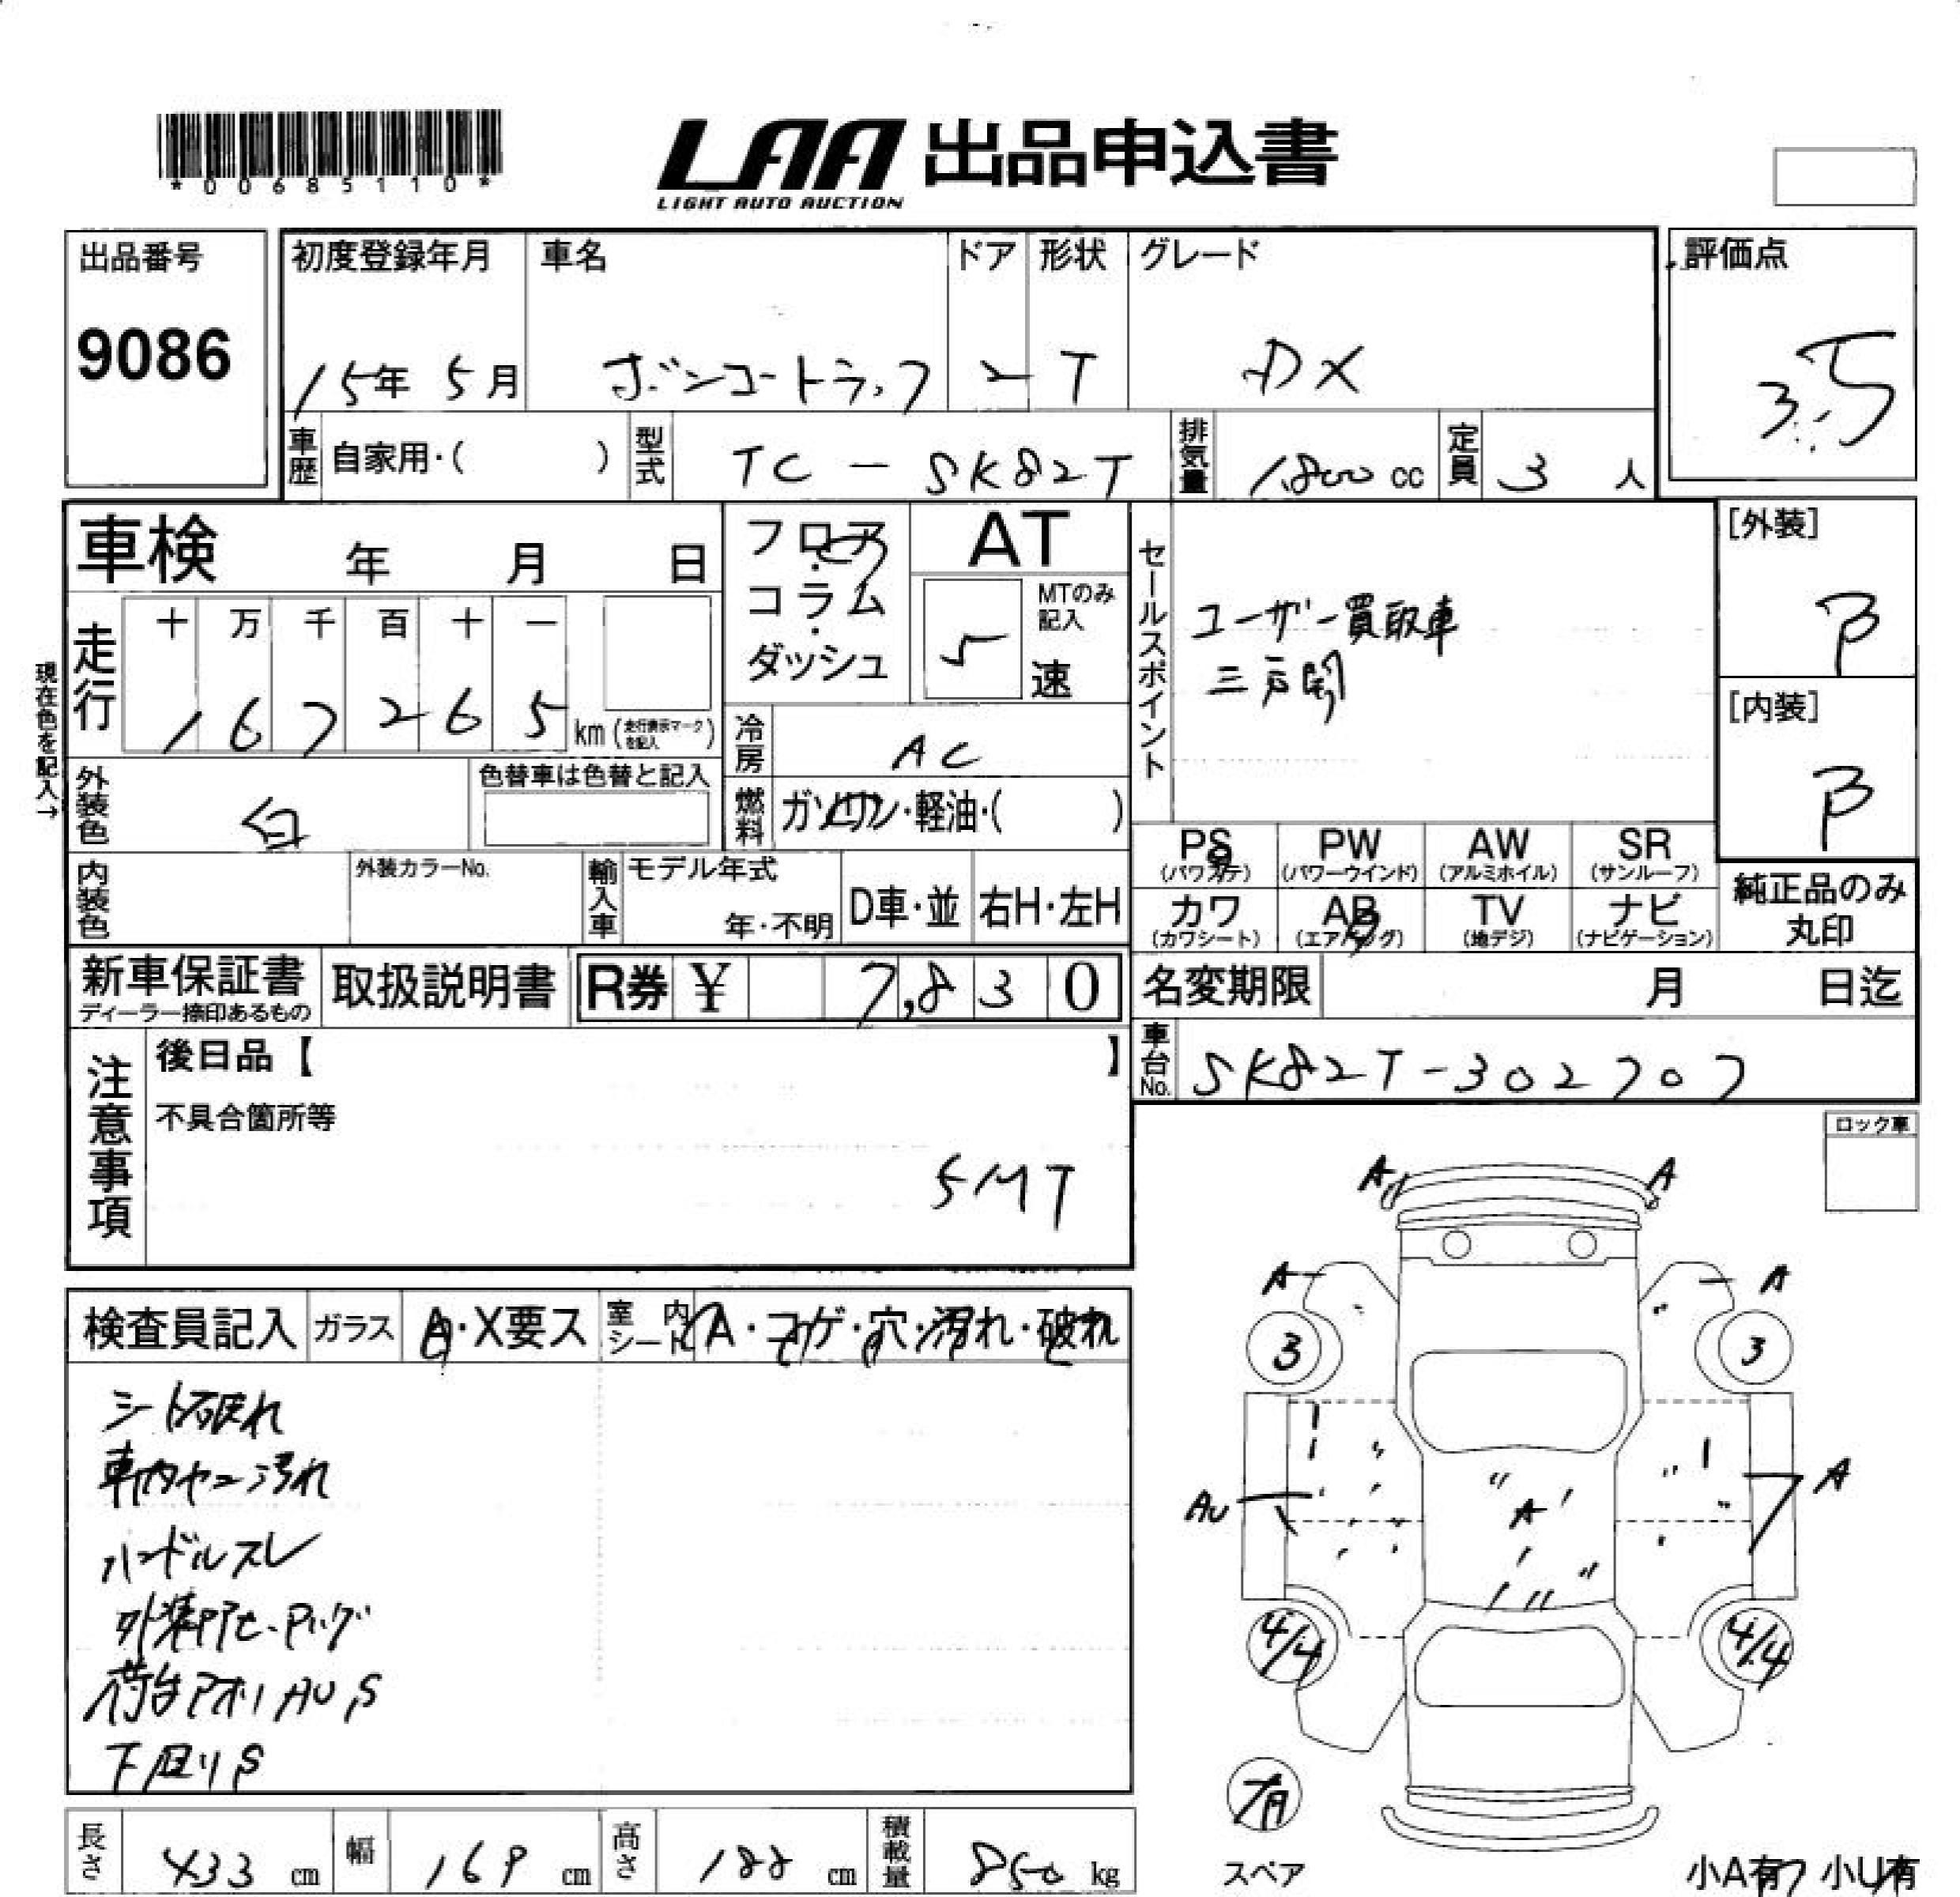 *00685110*
LAA 出品申込書
LIGHT AUTO AUCTION
出品番号
9086
初度登録年月
15年 5月
車名
ボンゴートラック
ドア
2
形状
T
グレード
DX
評価点
3.5
車歴 自家用・( )
型式 TC-SK82T
排気量 1,800 cc
定員 3 人
車検 年 月 日
フロア・コラム・ダッシュ
AT
MTのみ記入
5 速
セールスポイント
ユーザー買取車
三方開
[外装]
B
[内装]
B
現在色を記入→
走行 十 万 千 百 十 一
1 6 7 2 6 5 km (走行表示マークを記入)
冷房 AC
外装色 白
色替車は色替と記入
燃料 ガソリン・軽油・( )
内装色
外装カラーNo.
輸入車
モデル年式
年・不明
D車・並
右H・左H
PS (パワステ)
PW (パワーウインド)
AW (アルミホイル)
SR (サンルーフ)
カワ (カワシート)
AB (エアバッグ)
TV (地デジ)
ナビ (ナビゲーション)
純正品のみ丸印
新車保証書
ディーラー捺印あるもの
取扱説明書
R券 ¥ 7,830
名変期限 月 日迄
車台No. SK82T-302707
注意事項
後日品【 】
不具合箇所等
5MT
ロック車
検査員記入
ガラス A・X要ス
室内シート A・コゲ・穴・汚れ・破れ
シート破れ
車内ヤニ汚れ
ハンドルスレ
荷台アオリAUS
下回りS
A A
A A
3 3
AU A A
4/4 4/4
有
スペア
小A有 小U有
長さ 433 cm
幅 169 cm
高さ 188 cm
積載量 850 kg